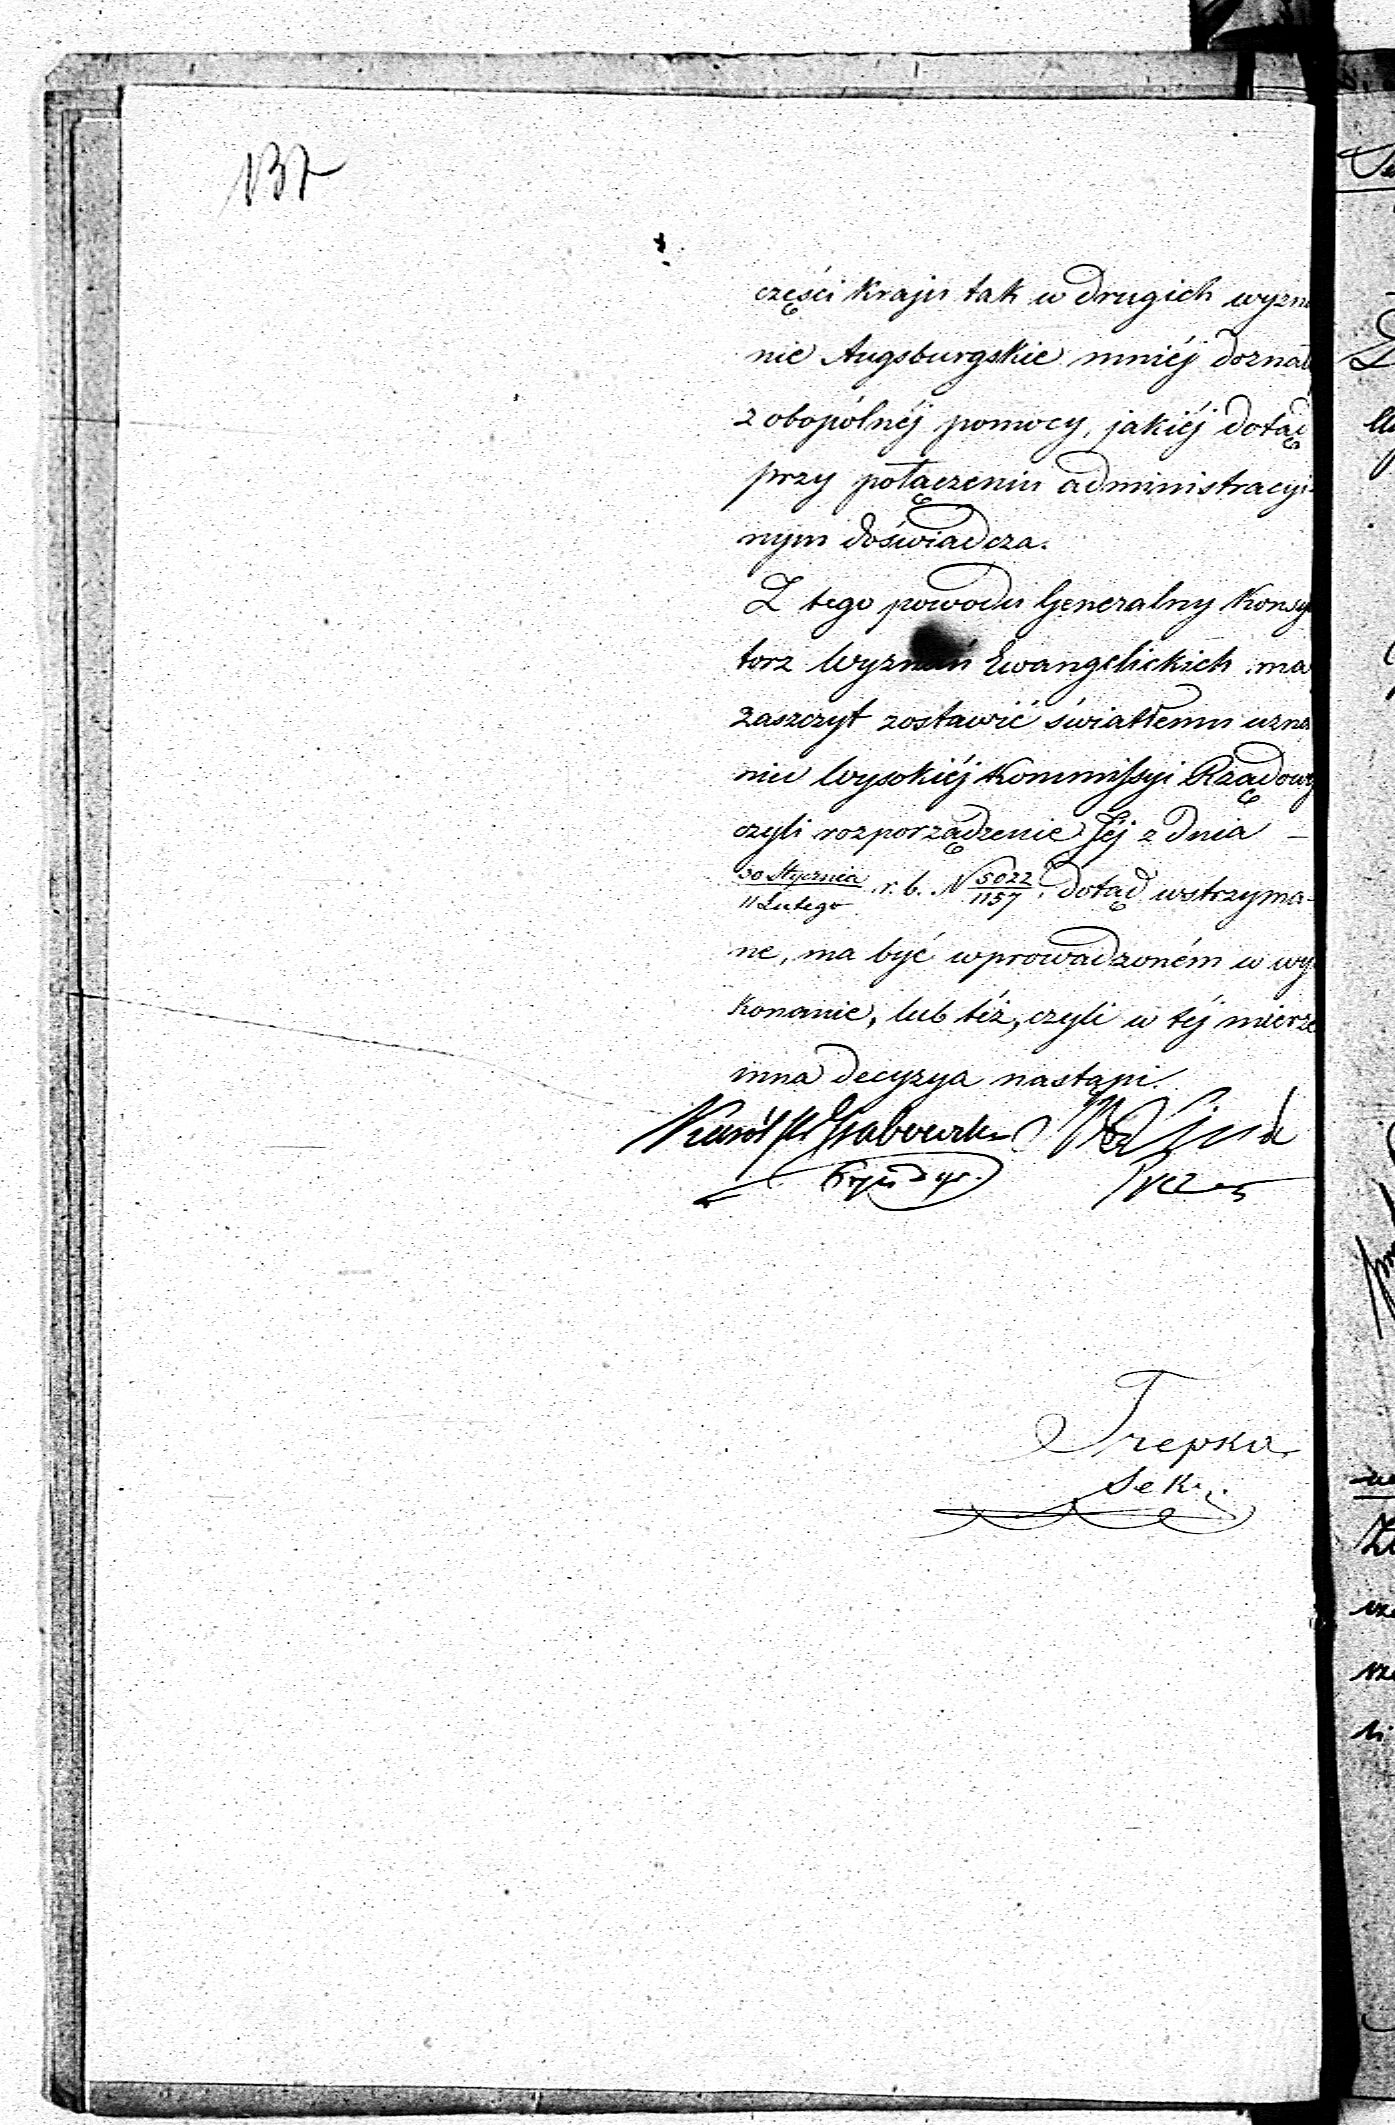 137
części kraju tak w drugich wyzna
nie Augsburgskie mniéj doznał
z obopólnéj pomocy, jakiéj dotąd
przy połączeniu administracyi-
nym doświadcza.
Z tego powodu Generalny Konsy
torz Wyznań Ewangelickich ma
zaszczyt zostawić światłemu uzna
niu Wysokiéj Kommissyi Rządowy
czyli rozporządzenie Jéj z dnia –
30 Stycznia / 11 Lutego r. b. N 5022 / 1157. dotąd wstrzyma-
ne, ma być wprowadzoném w wy
konanie, lub téż, czyli w téj mierze
inna decyzya nastąpi.
Karol Grabowski
Prezes
Trepka
Sekr.